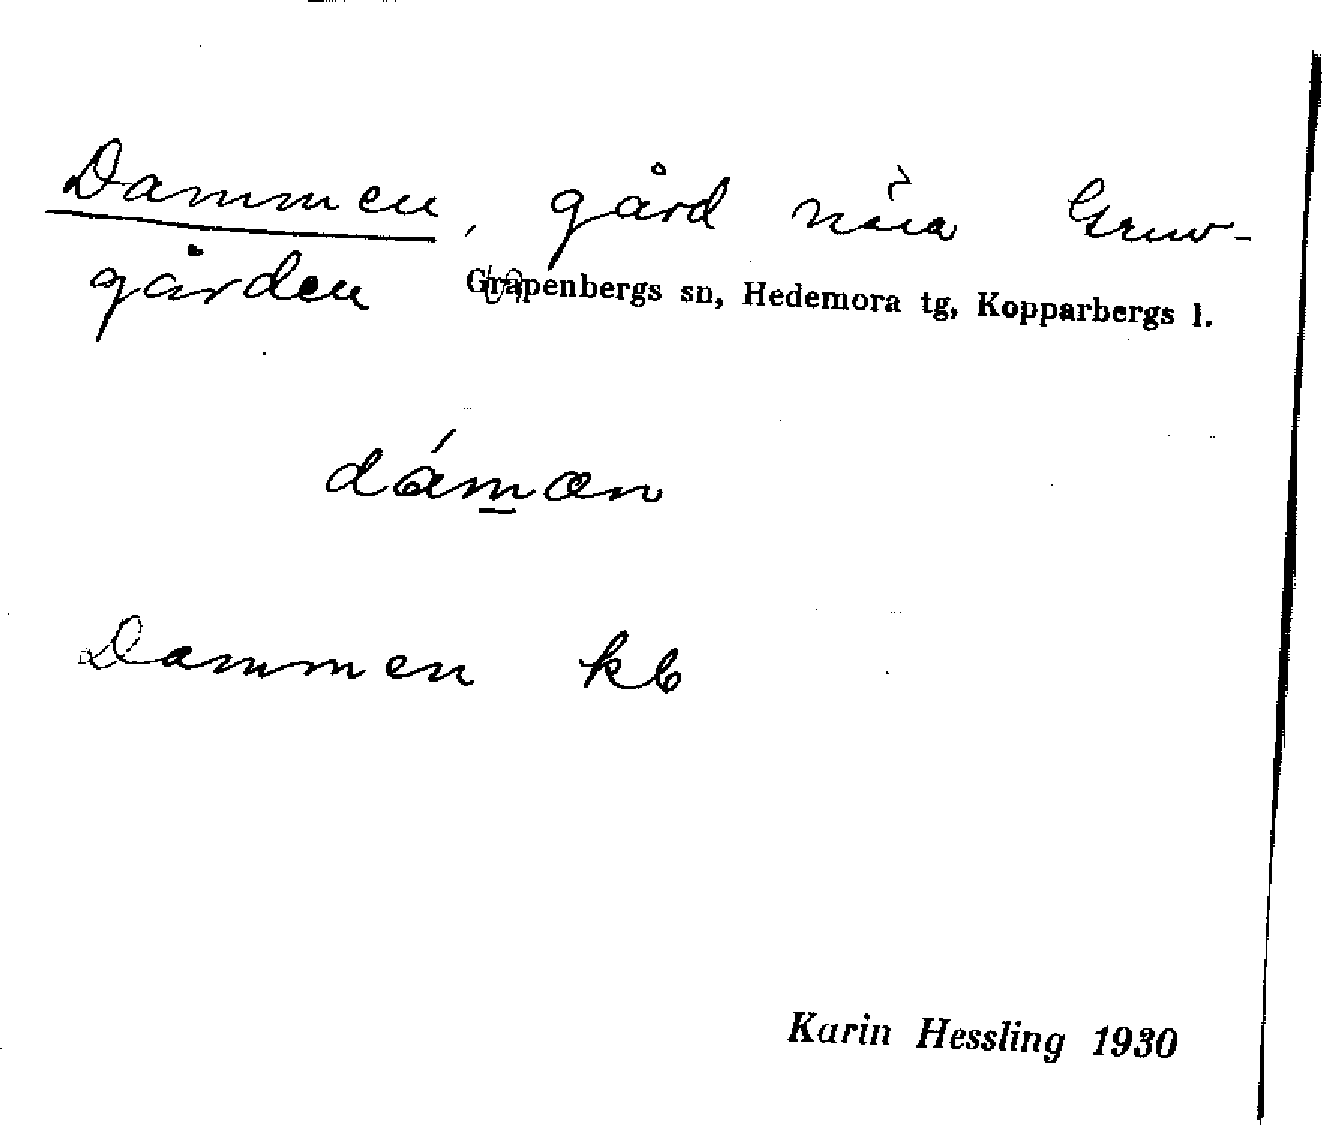 Dammen, gård nära Gruv-
gården Grapenbergs sn, Hedemora tg, Kopparbergs l.
dámæn
Dammen kb
Karin Hessling 1930